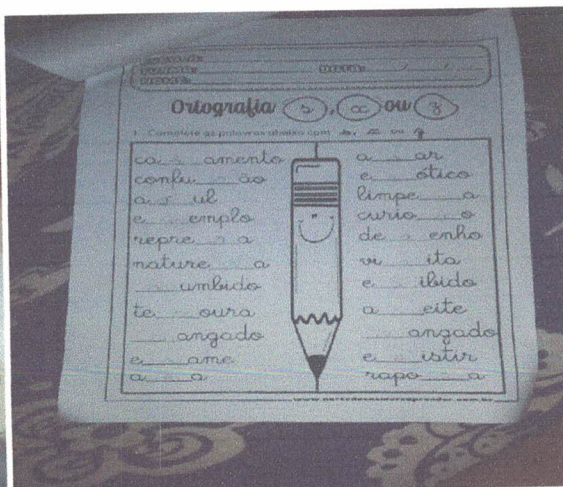 DATA: / /
Ortografia s, x ou z
1 - Complete as palavras abaixo com s, x ou z
ca s amento
confu s ão
a ul
e emplo
repre s a
nature a
umbido
te oura
angado
e ame
a a
a ar
e ótico
limpe a
curio o
de enho
vi ita
e ibido
a eite
angado
e istir
rapo a